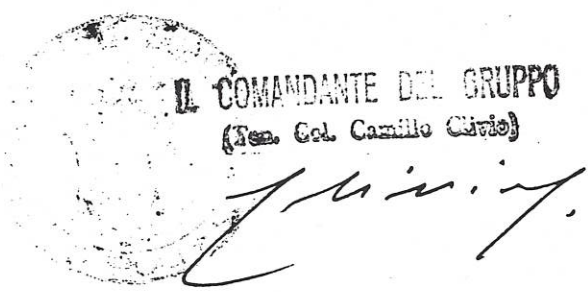 IL COMANDANTE DEL GRUPPO
(Ten. Col. Camillo Clivio)